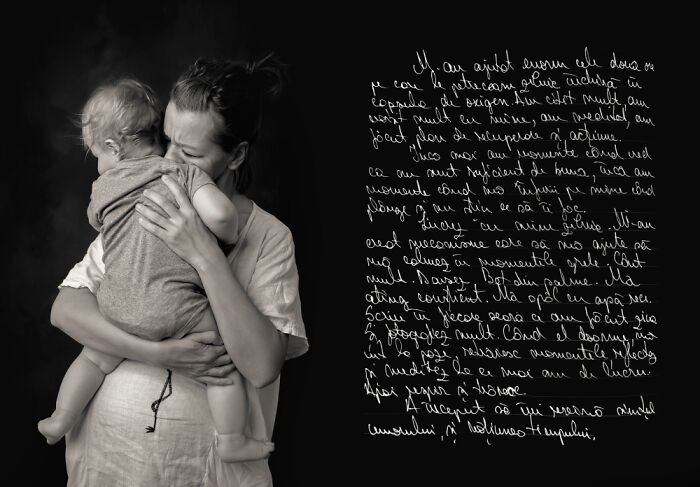 M-au ajutat enorm cele doua ore
pe care le petreceam zilnic închisă în
capsula de oxigen. Am citit mult, am
vorbit mult cu mine, am meditat, am
făcut plan de recuperare și acțiune.
Încă mai am momente când cred
ca nu sunt suficient de buna, încă am
momente când mă înfurii pe mine când
plânge și nu știu ce să îi fac.
Lucrez cu mine zilnic. Mi-am
creat mecanisme care să mă ajute să
mă calmez în momentele grele. Cânt
mult. Dansez. Bat din palme. Mă
ating conștient. Mă spăl cu apă rece.
Scriu în fiecare seara ce am făcut ziua
Și fotografiez mult. Când el doarme, mă
uit la poze, retrăiesc momentele
și meditez la ce mai am de lucru.
Apoi respir și trăiesc.
A început să îmi revină simțul
umorului, și noțiunea timpului.